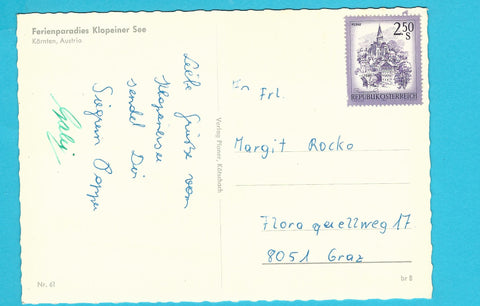 Ferienparadies Klopeiner See
Kärnten, Austria
Liebe Grüße vom
Klopeinersee
sendet Dir
Sigrun Popper
Gabi
Nr. 61
Verlag Planer, Kötschach
2.50
S
REPUBLIK ÖSTERREICH
An Frl.
Margit Rocko
Floraquellweg 17
8051 Graz
br 8